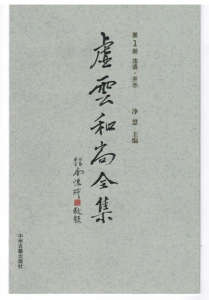 第1册 法语·开示
净慧 主编
虚雲和尚全集
南怀瑾 敬题
中州古籍出版社